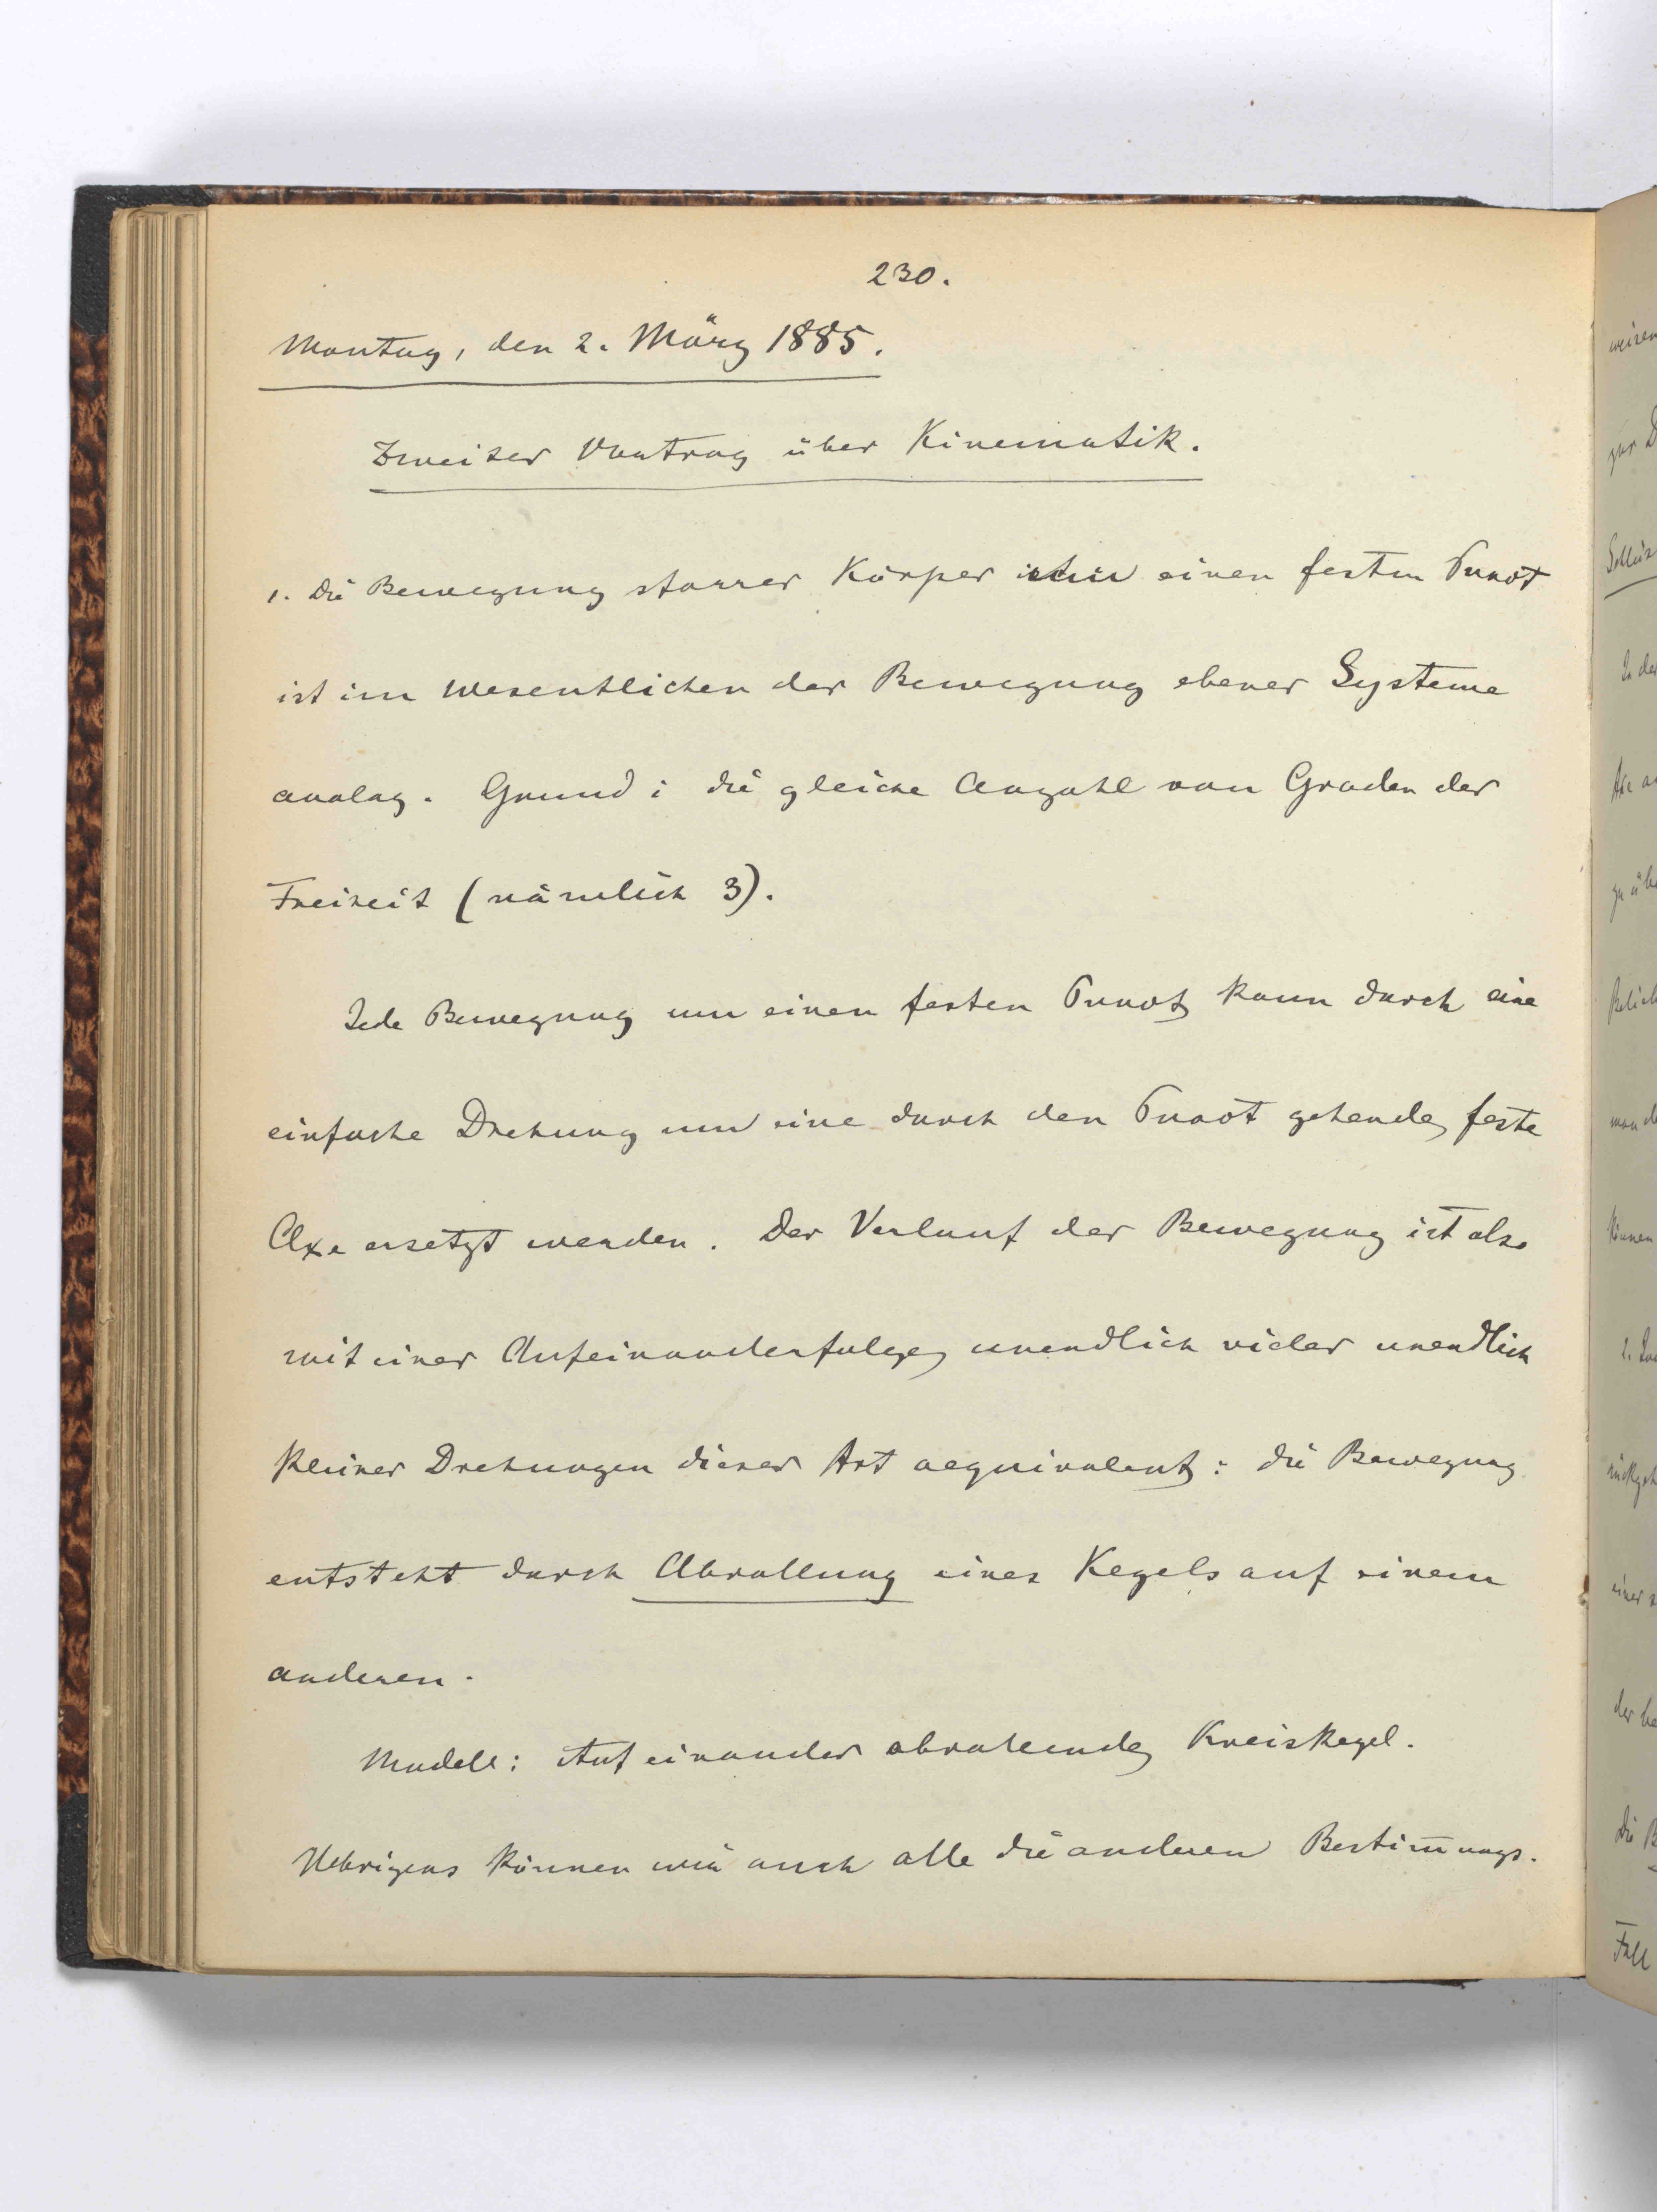 230.
Montag, den 2. März 1885.
Zweiter Vortrag über Kinematik.
1. Die Bewegung starrer Körper einen festen Punct
ist im Wesentlichen der Bewegung ebener Systeme
analog. Grund: die gleiche Anzahl von Graden der
Freiheit (nämlich 3).
Jede Bewegung um einen festen Punct kann durch eine
einfache Drehung um eine durch den Punct gehende feste
Axe ersetzt werden. Der Verlauf der Bewegung ist also
mit einer Aufeinanderfolge unendlich vieler unendlich
kleiner Drehungen dieser Art aequivalent: die Bewegung
entsteht durch Abrollung eines Kegels auf einem
anderen.
Modell: Auf einander abrollende Kreiskegel.
Uebrigens können wir auch alle die anderen Bestim̅ungs-